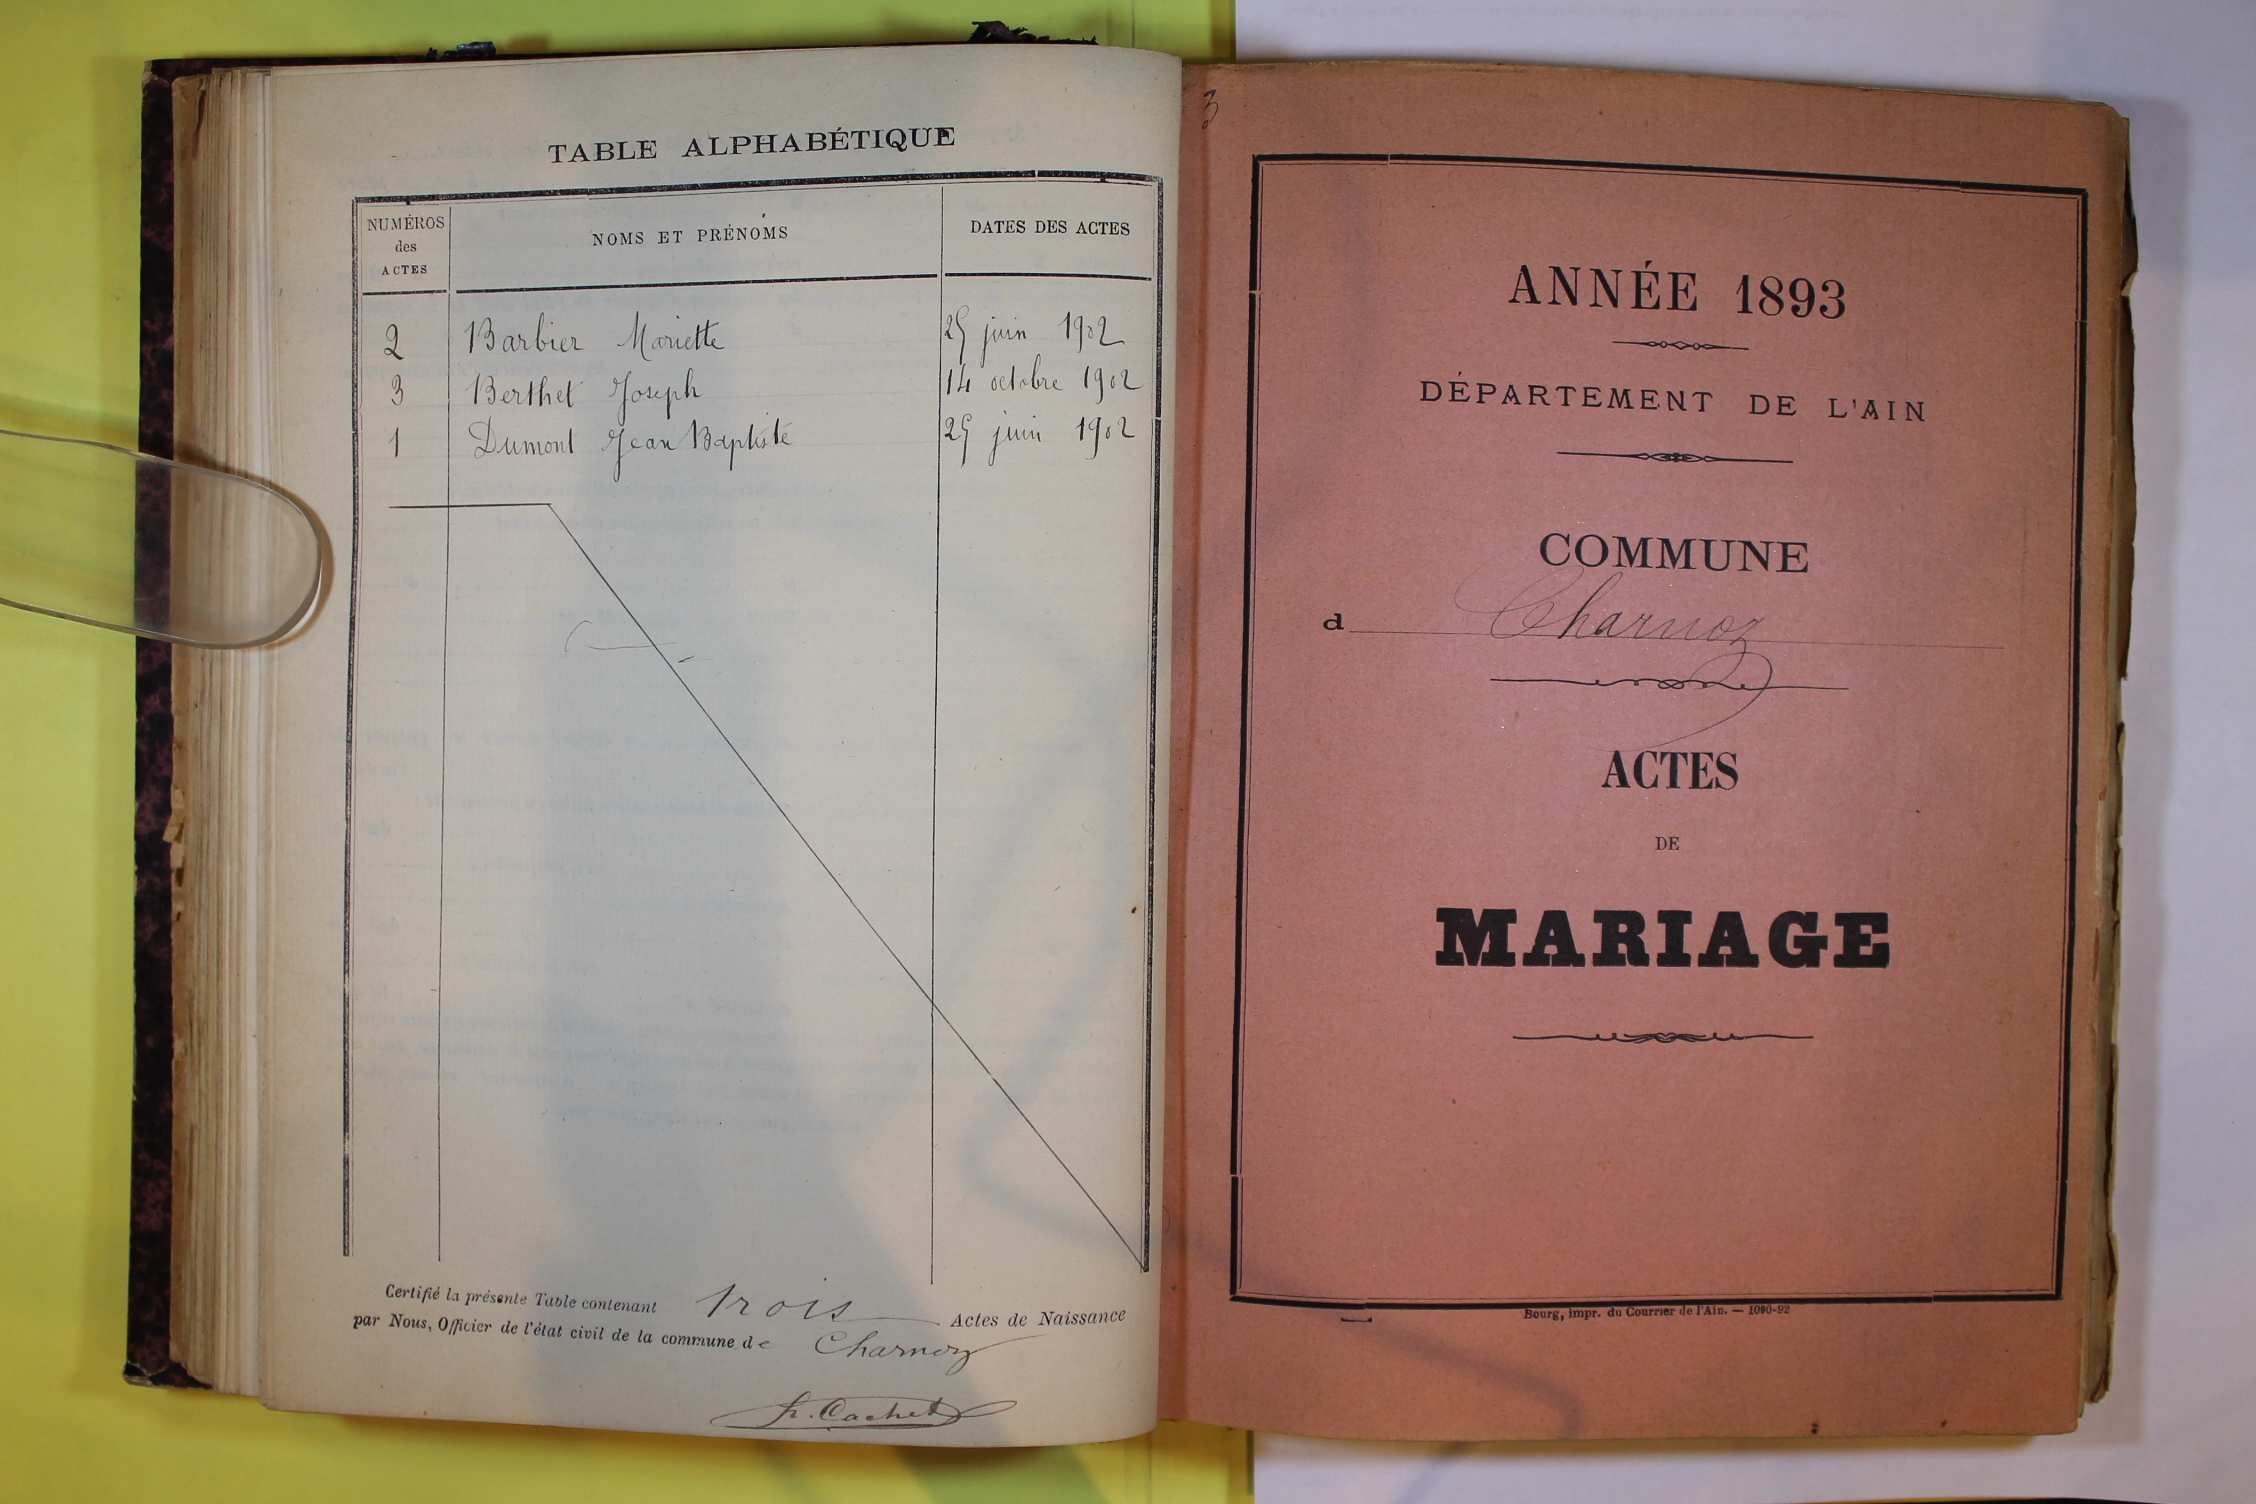 TABLE ALPHABÉTIQUE
NUMÉROS
des
ACTES
NOMS ET PRÉNOMS
DATES DES ACTES
2 Barbier Mariette 25 juin 1902
3 Berthet Joseph 14 octobre 1902
1 Dumont Jean Baptiste 25 juin 1902
Certifié la présente Table contenant trois Actes de Naissance
par Nous, Officier de l'état civil de la commune de Charnoz
Cachet
3
ANNÉE 1893
DÉPARTEMENT DE L'AIN
COMMUNE
d Charnoz
ACTES
DE
MARIAGE
Bourg, impr. du Courrier de l'Ain. — 1090-92